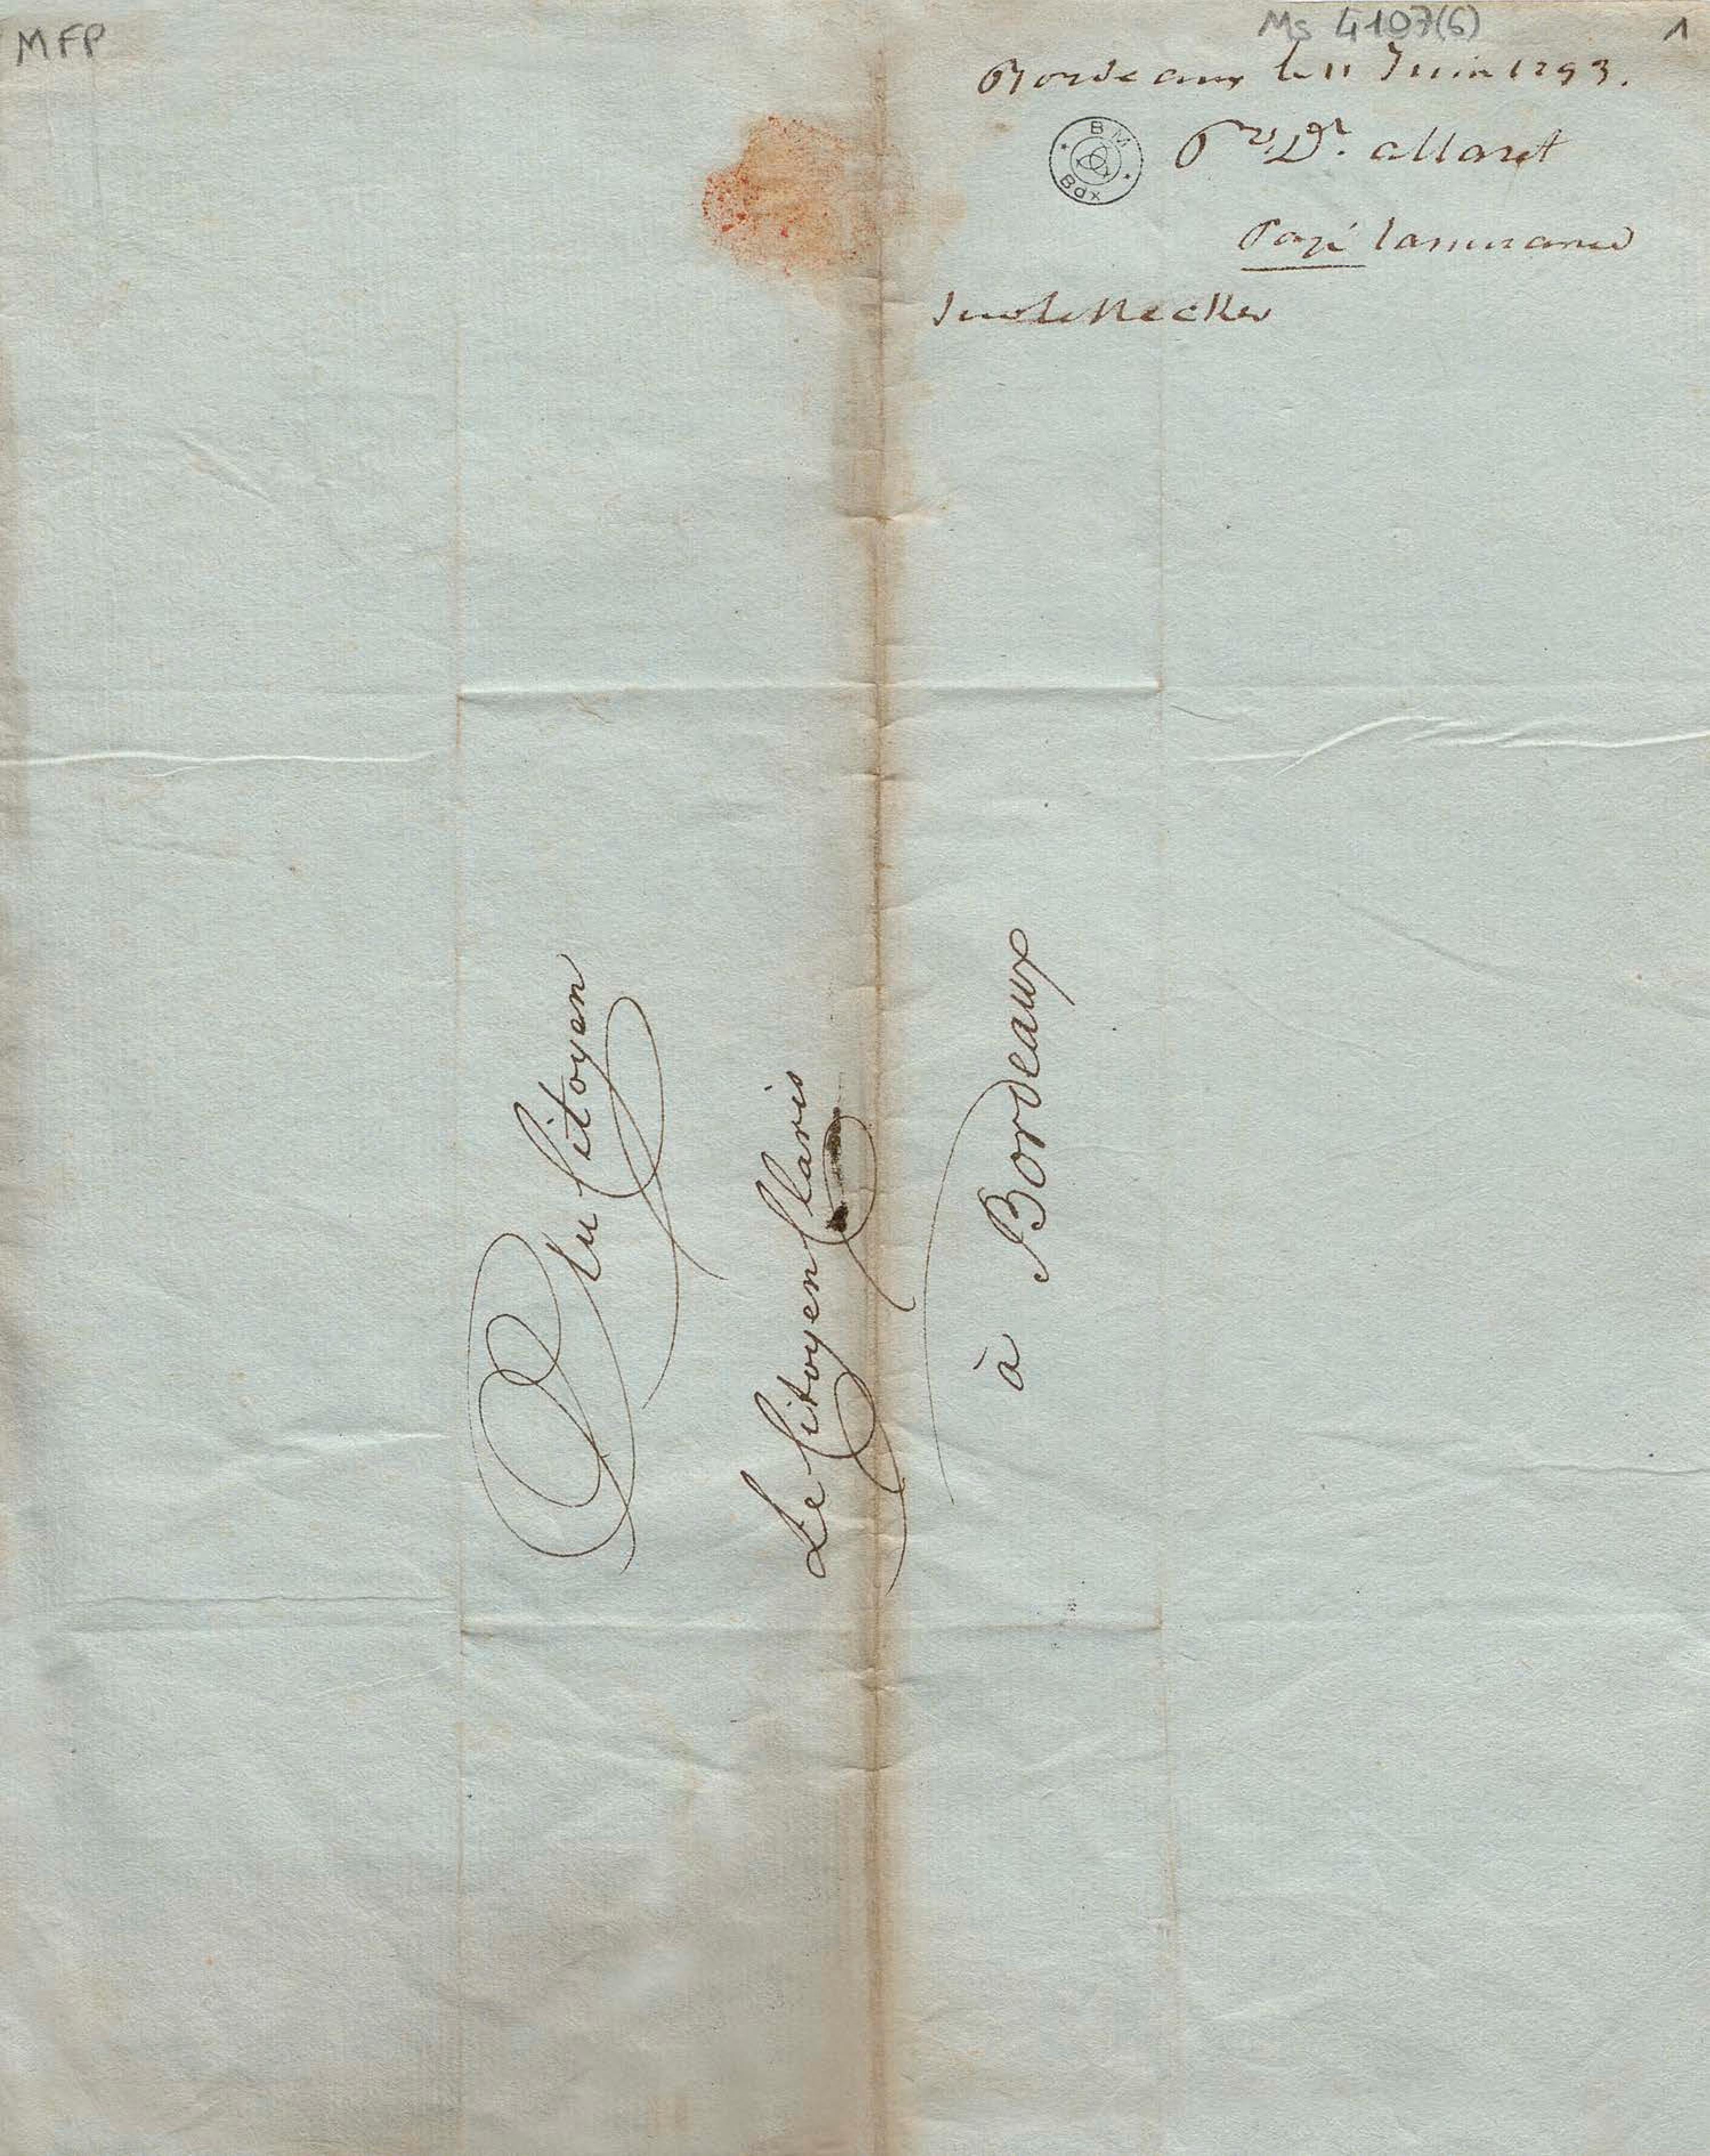 MFP
Ms 4107(6)
1
Bordeaux le 11 Juin 1793.
BM
Bdx
Dr. allaret
Payé lassurance
sur le Necker
Au Citoyen
Le Citoyen Claris
à Bordeaux